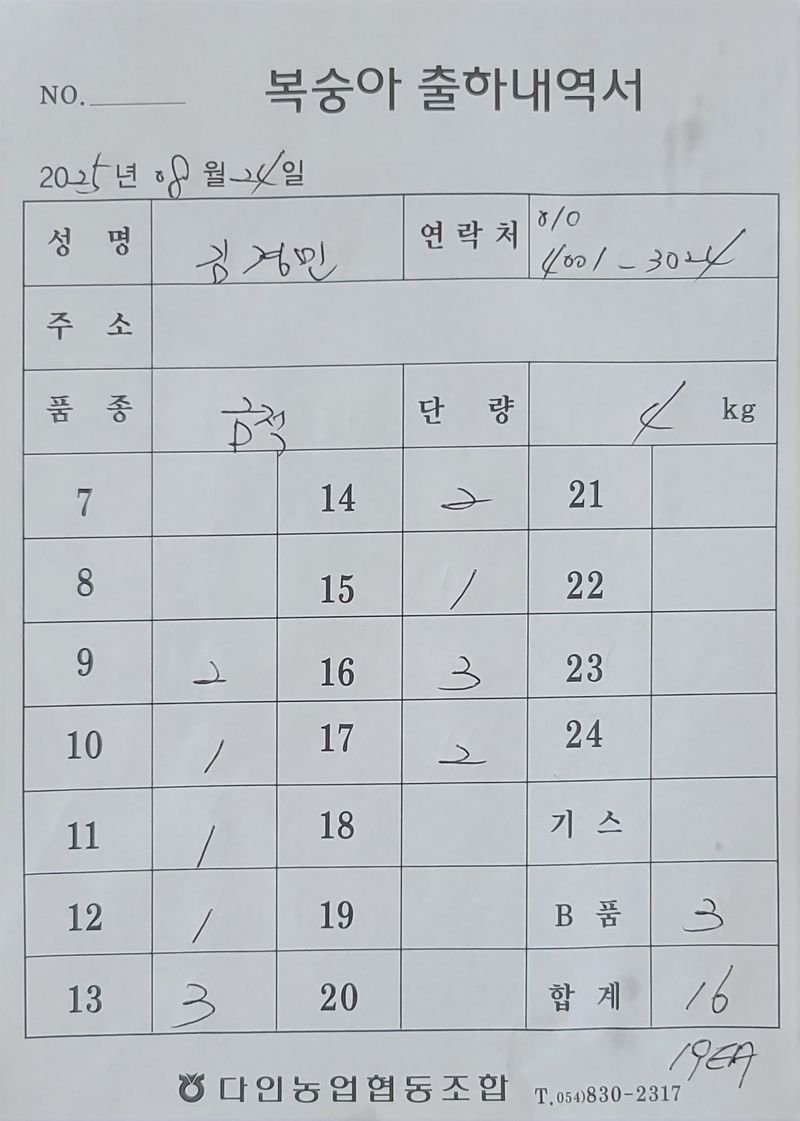 NO.
복숭아 출하내역서
2025년 08월 24일
성 명 김경민 연 락 처 010 4001-3024
주 소
품 종 단 량 4 kg
7 14 2 21
8 15 1 22
9 2 16 3 23
10 1 17 2 24
11 1 18 기 스
12 1 19 B 품 3
13 3 20 합 계 16
19EA
다인농업협동조합 T.054)830-2317